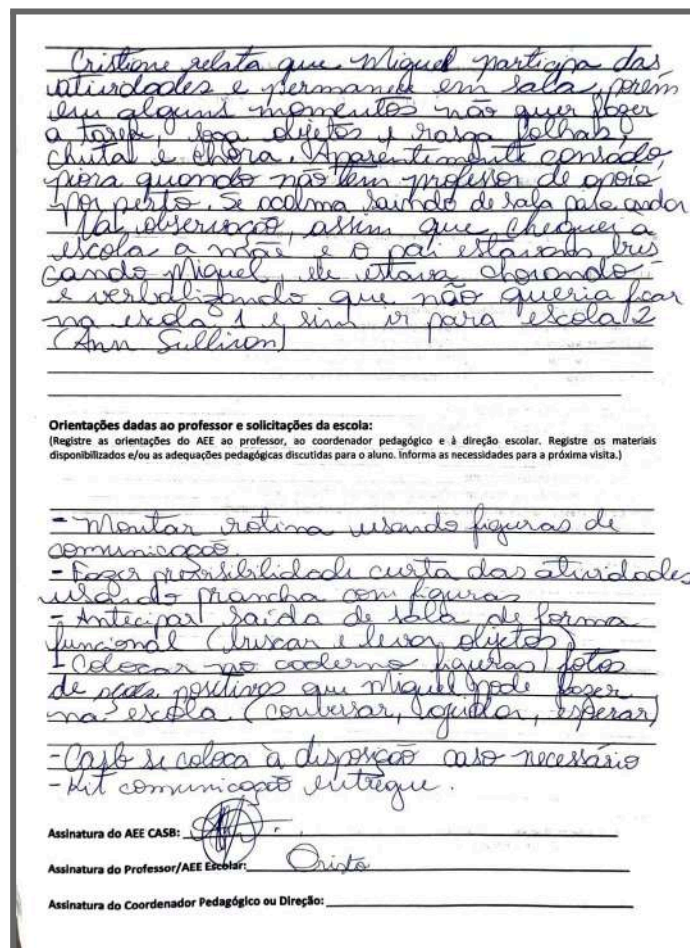 Cristiane relata que Miguel participa das
atividades e permanece em sala, porém
em alguns momentos não quer fazer
a tarefa, joga objetos e rasga folhas,
chuta e chora. Aparentemente cansado,
piora quando não tem professor de apoio
por perto. Se acalma saindo de sala para andar
Na observação, assim que cheguei a
escola a mãe e o pai estavam bus
cando Miguel, ele estava chorando
e verbalizando que não queria ficar
na escola 1 e sim ir para escola 2
(Ann Sullivan)
Orientações dadas ao professor e solicitações da escola:
(Registre as orientações do AEE ao professor, ao coordenador pedagógico e à direção escolar. Registre os materiais
disponibilizados e/ou as adequações pedagógicas discutidas para o aluno. Informa as necessidades para a próxima visita.)
- Montar rotina usando figuras de
comunicação.
- Fazer previsibilidade curta das atividades
usando prancha com figuras
- Antecipar saída de sala de forma
funcional (buscar e levar objetos)
- Colocar no caderno figuras/fotos
de positivos que Miguel pode fazer
na escola (conversar, ajudar, esperar)
- Casb se coloca à disposição caso necessário
- Kit comunicação entregue.
Assinatura do AEE CASB:
Assinatura do Professor/AEE Escolar:
Assinatura do Coordenador Pedagógico ou Direção: